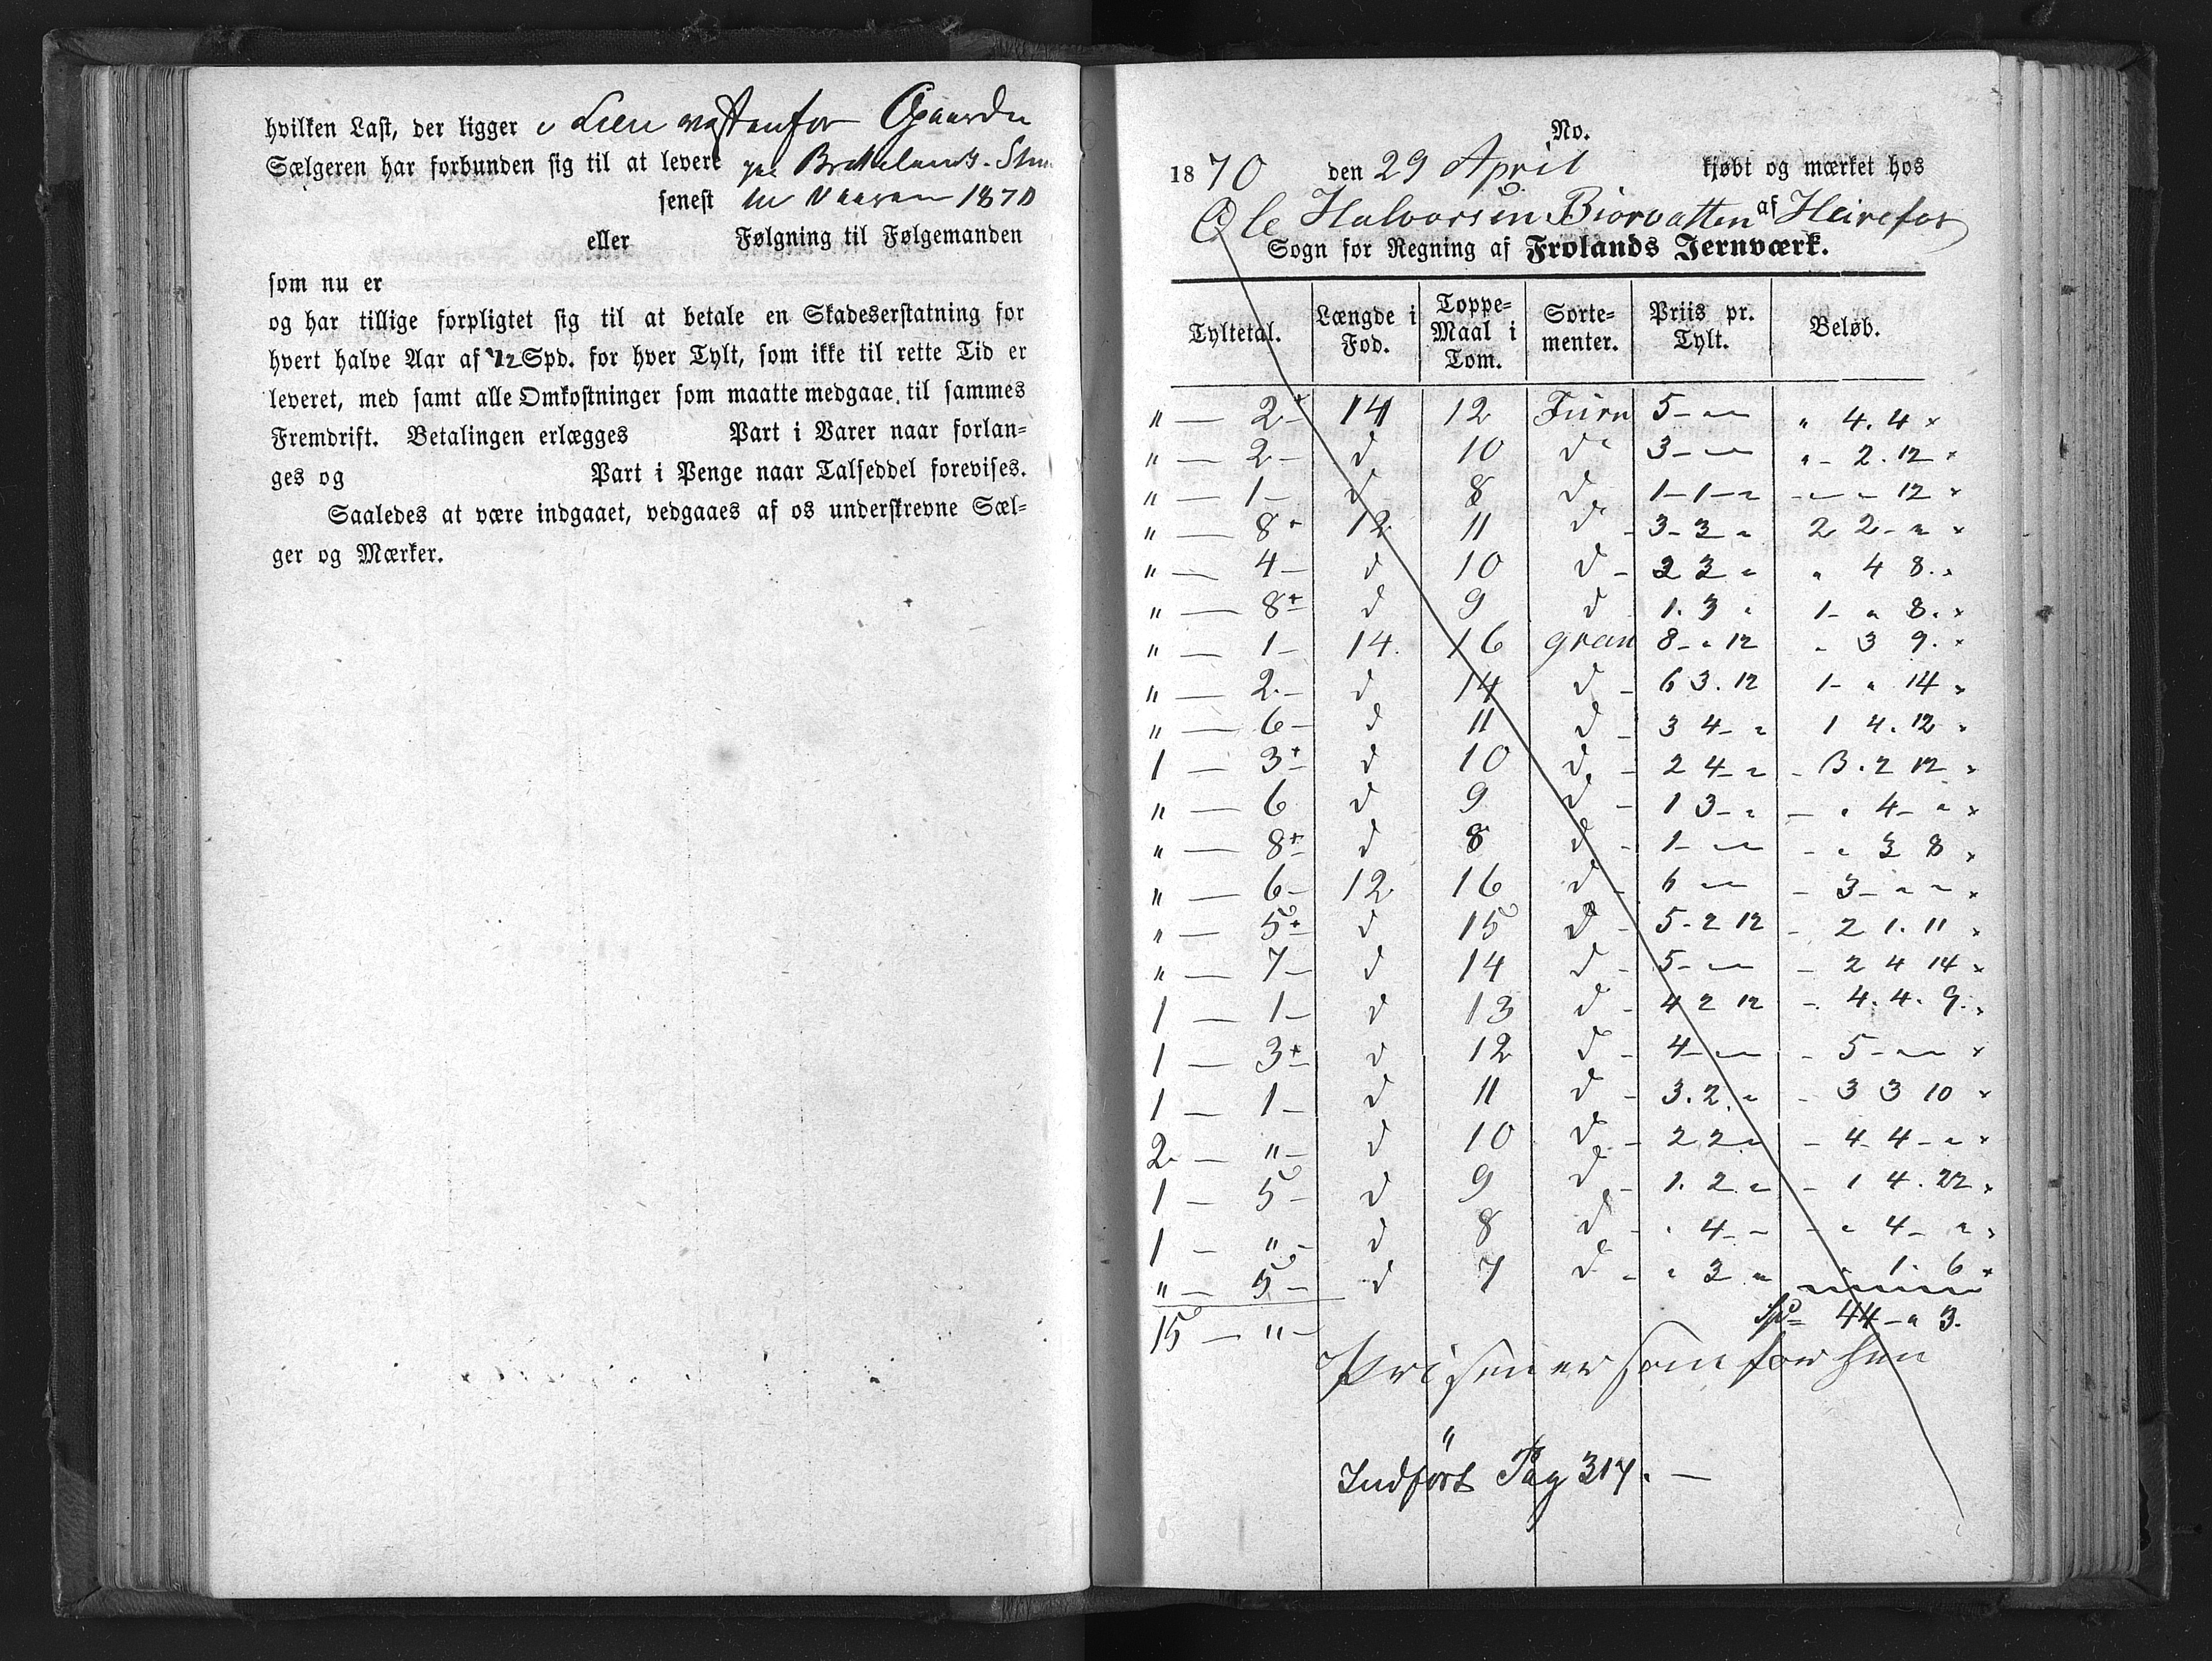 hvilken Last, der ligger i Lien vestenfor Gaarden
Sælgeren har forbunden sig til at levere paa
senest til Vaaren 1870
eller Følgning til Følgemanden
som nu er
og har tillige forpligtet sig til at betale en Skadeserstatning for
hvert halve Aar af 1/2 Spd. for hver Tylt, som ikke til rette Tid er
leveret, med samt alle Omkostninger som maatte medgaae til sammes
Fremdrift. Betalingen erlægges Part i Varer naar forlan=
ges og Part i Penge naar Talseddel forevises.
Saaledes at være indgaaet, vedgaaes af os underskrevne Sæl=
ger og Mærker.
No.
1870 den 29 April kjøbt og mærket hos
Ole Halvorsen Biorvatten af Heirefos
Sogn for Regning af Frolands Jernværk.
Tyltetal. Længde i Fod. Toppe=Maal i Tom. Sorte=menter. Priis pr. Tylt. Beløb.
" — 2+ 14 12 Furu 5 - " " " 4. 4 ×
" — 2 - d 10 do 3 - " " " - 2. 12 ×
" — 1 - d 8 do 1 - 1 - " - " - " 12 ×
" — 8+ 12 11 do - 3 - 3 " 2 2 - " ×
" — 4 - d 10 d - 2 3 " " 4 8. ×
" — 8+ d 9 d 1. 3 " 1 - " 8. ×
" — 1 - 14. 16 gran 8 - " 12 " 3 9. ×
" — 2 - d 14 d - 6 3. 12 1 - " 14 ×
" — 6 - d 11 d - 3 4 - " 1 4. 12 ×
1 — 3+ d 10 d - 2 4 - " - 3. 2 12 ×
" — 6 d 9 d - 1 3 - " - " 4 - " ×
" — 8+ d 8 d - 1 - " " - " 3 8 ×
" — 6 - 12 16 d - 6 " " - 3 - " " ×
" — 5+ d 15 d - 5 - 2 12 - 2 1. 11 ×
" — 7 - d 14 d - 5 - " " - 2 4 14 ×
1 — 1 - d 13 d - 4 2 12 - 4. 4. 9. ×
1 — 3+ d 12 d - 4 - " " - 5 - " " ×
1 — 1 - d 11 d - 3. 2. " - 3 3 10 ×
2 — " - d 10 d - 2 2 " - 4 - 4 - " ×
1 — 5 - d 9 d - 1. 2. " - 1 4. 22 ×
1 — " - d 8 d - " 4 - " - " 4 - " ×
" — 5 - d 7 d - " 3 " 1. 6 ×
15 — " - Spd 44 - " 3.
Prisen er som for hen
"
Indført Pag 317. —